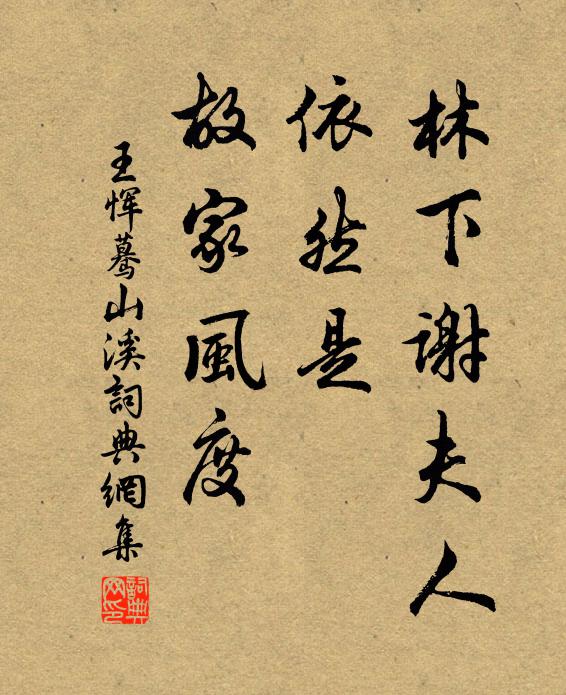 林下謝夫人
依然是
故家風度
王惲驀山溪詞典網集
詞典网印